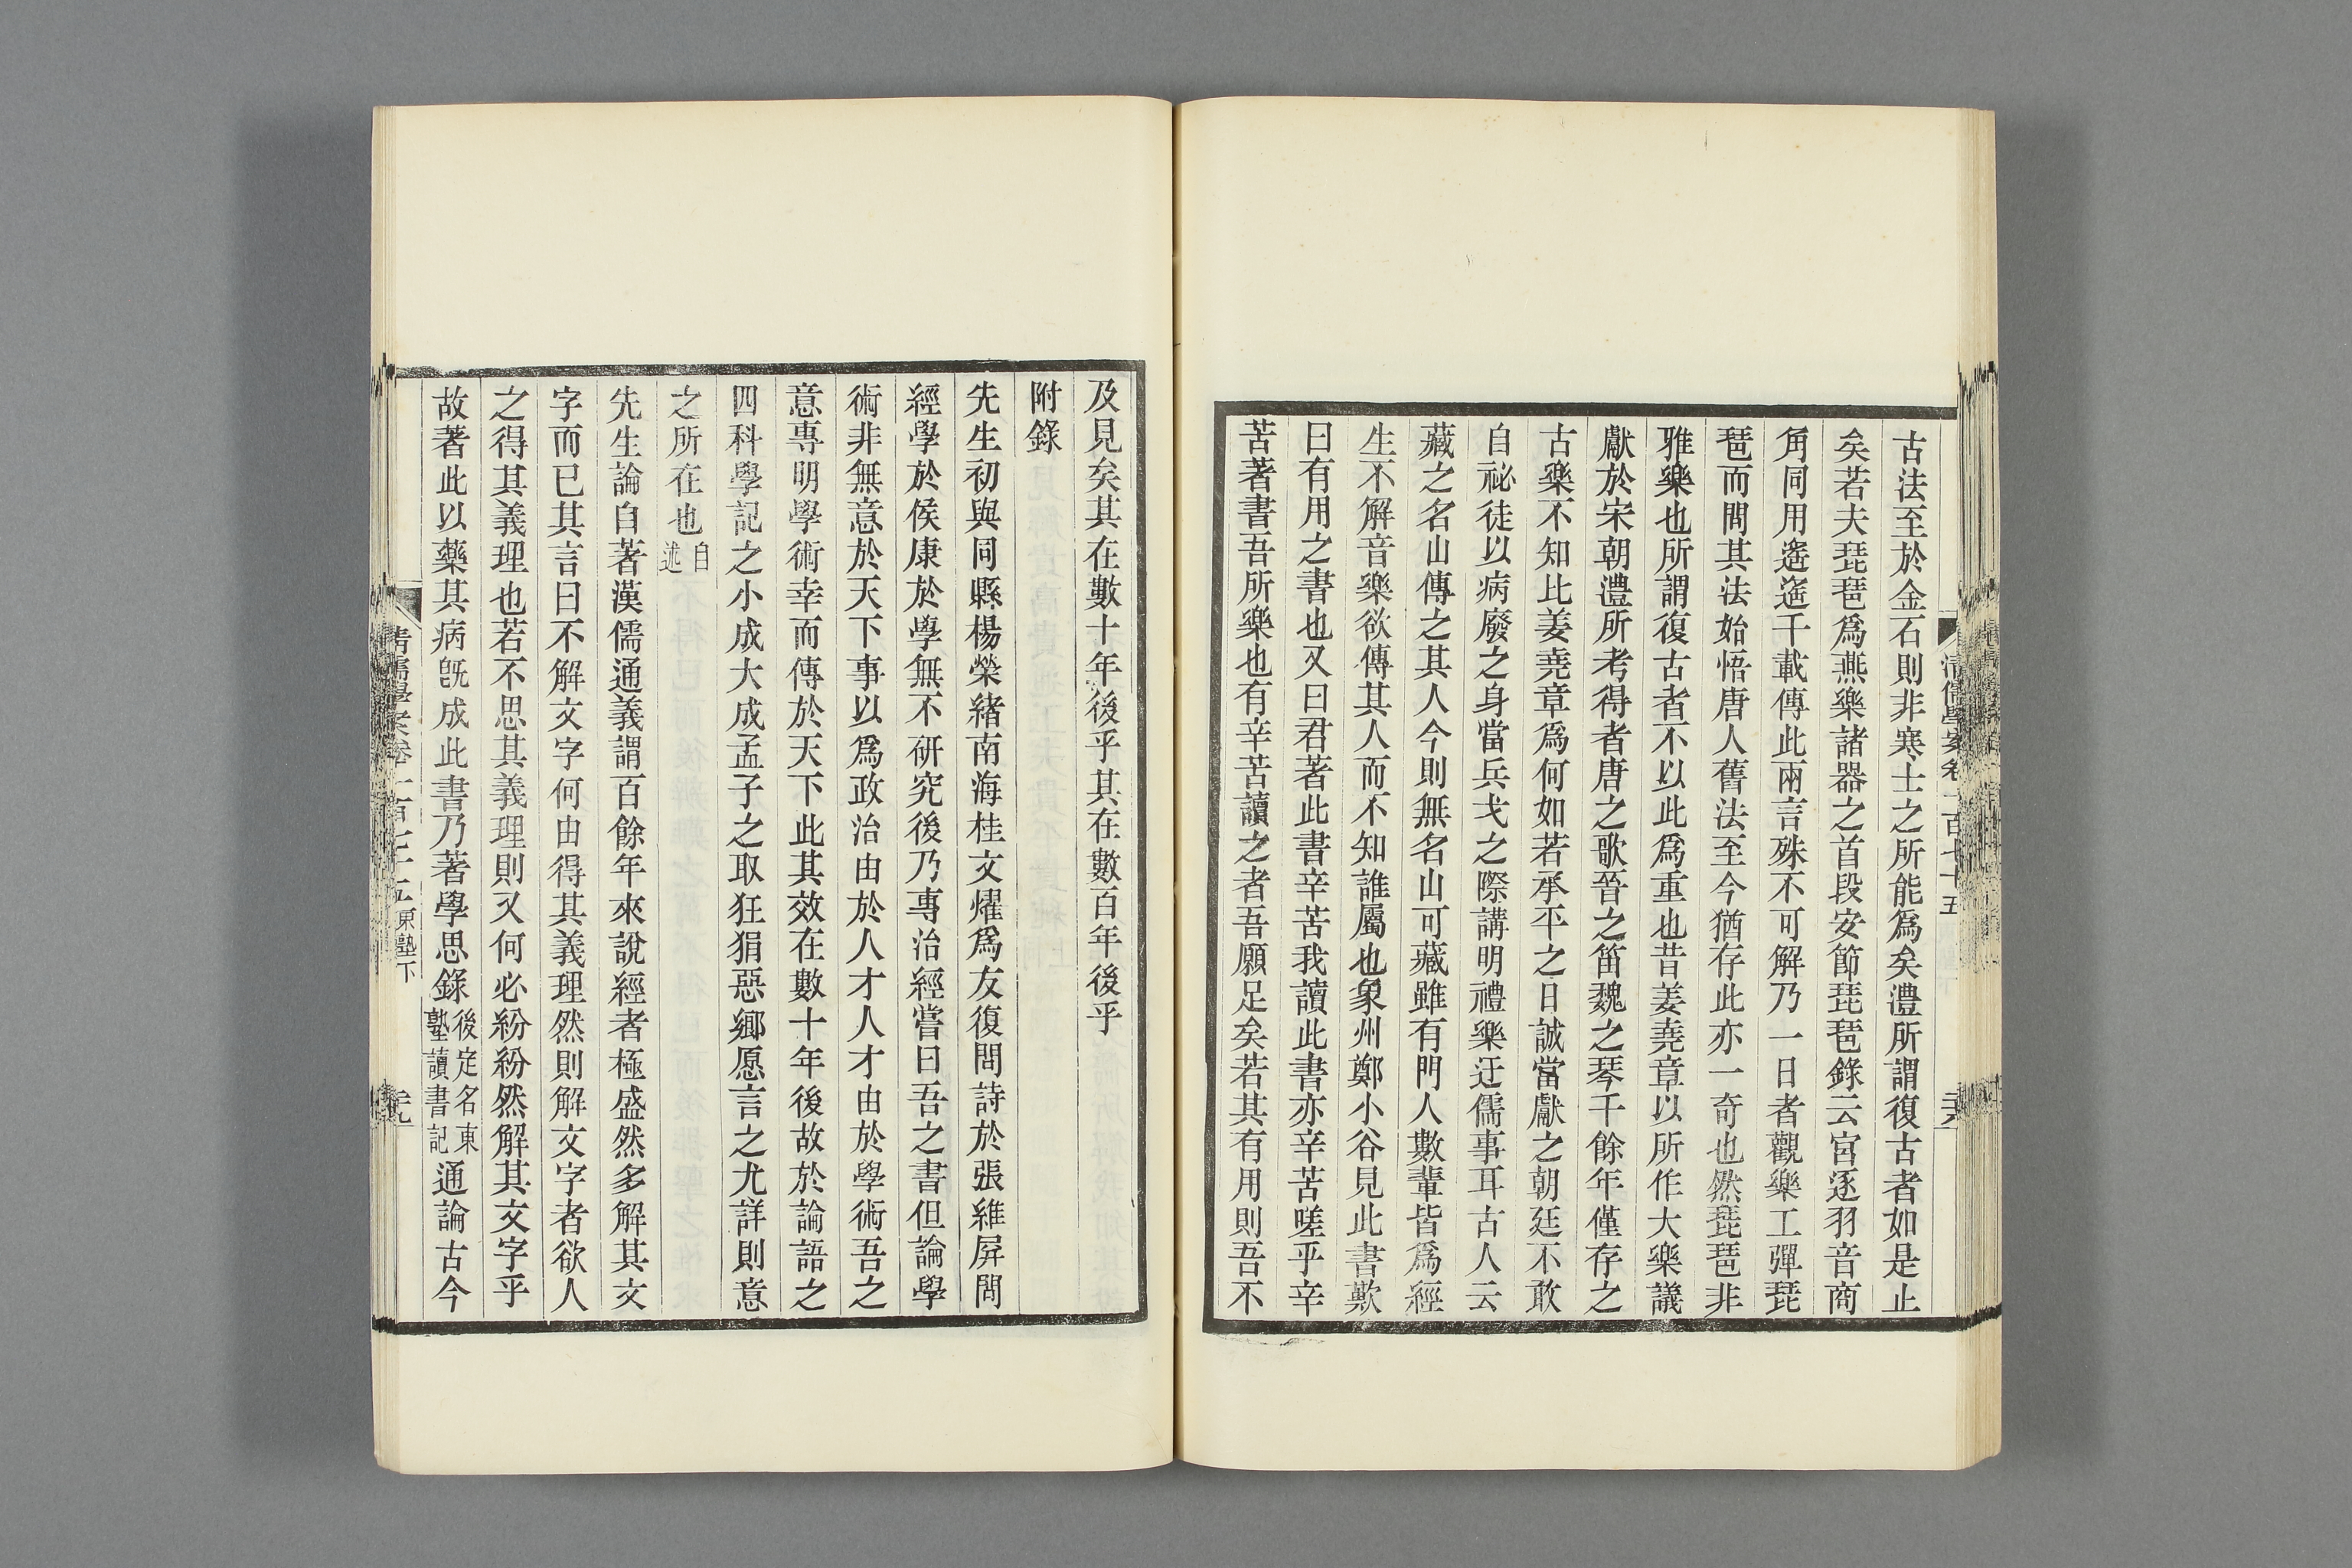 清儒學案卷一百七十五
古法至於金石則非寒士之所能爲矣澧所謂復古者如是止
矣若夫琵琶爲燕樂諸器之首段安節琵琶錄云宮逐羽音商
角同用遙遙千載傳此兩言殊不可解乃一日者觀樂工彈琵
琶而問其法始悟唐人舊法至今猶存此亦一奇也然琵琶非
雅樂也所謂復古者不以此爲重也昔姜堯章以所作大樂議
獻於宋朝澧所考得者唐之歌晉之笛魏之琴千餘年僅存之
古樂不知比姜堯章爲何如若承平之日誠當獻之朝廷不敢
自祕徒以病廢之身當兵戈之際講明禮樂迂儒事耳古人云
藏之名山傳之其人今則無名山可藏雖有門人數輩皆爲經
生不解音樂欲傳其人而不知誰屬也象州鄭小谷見此書歎
曰有用之書也又曰君著此書辛苦我讀此書亦辛苦嗟乎辛
苦著書吾所樂也有辛苦讀之者吾願足矣若其有用則吾不
及見矣其在數十年後乎其在數百年後乎
附錄
先生初與同縣楊榮緒南海桂文燿爲友復問詩於張維屏問
經學於侯康於學無不研究後乃專治經嘗曰吾之書但論學
術非無意於天下事以爲政治由於人才人才由於學術吾之
意專明學術幸而傳於天下此其效在數十年後故於論語之
四科學記之小成大成孟子之取狂狷惡鄉愿言之尤詳則意
之所在也自述
先生論自著漢儒通義謂百餘年來說經者極盛然多解其文
字而已其言曰不解文字何由得其義理然則解文字者欲人
之得其義理也若不思其義理則又何必紛紛然解其文字乎
故著此以藥其病旣成此書乃著學思錄後定名東塾讀書記通論古今
清儒學案卷一百七十五 東塾下